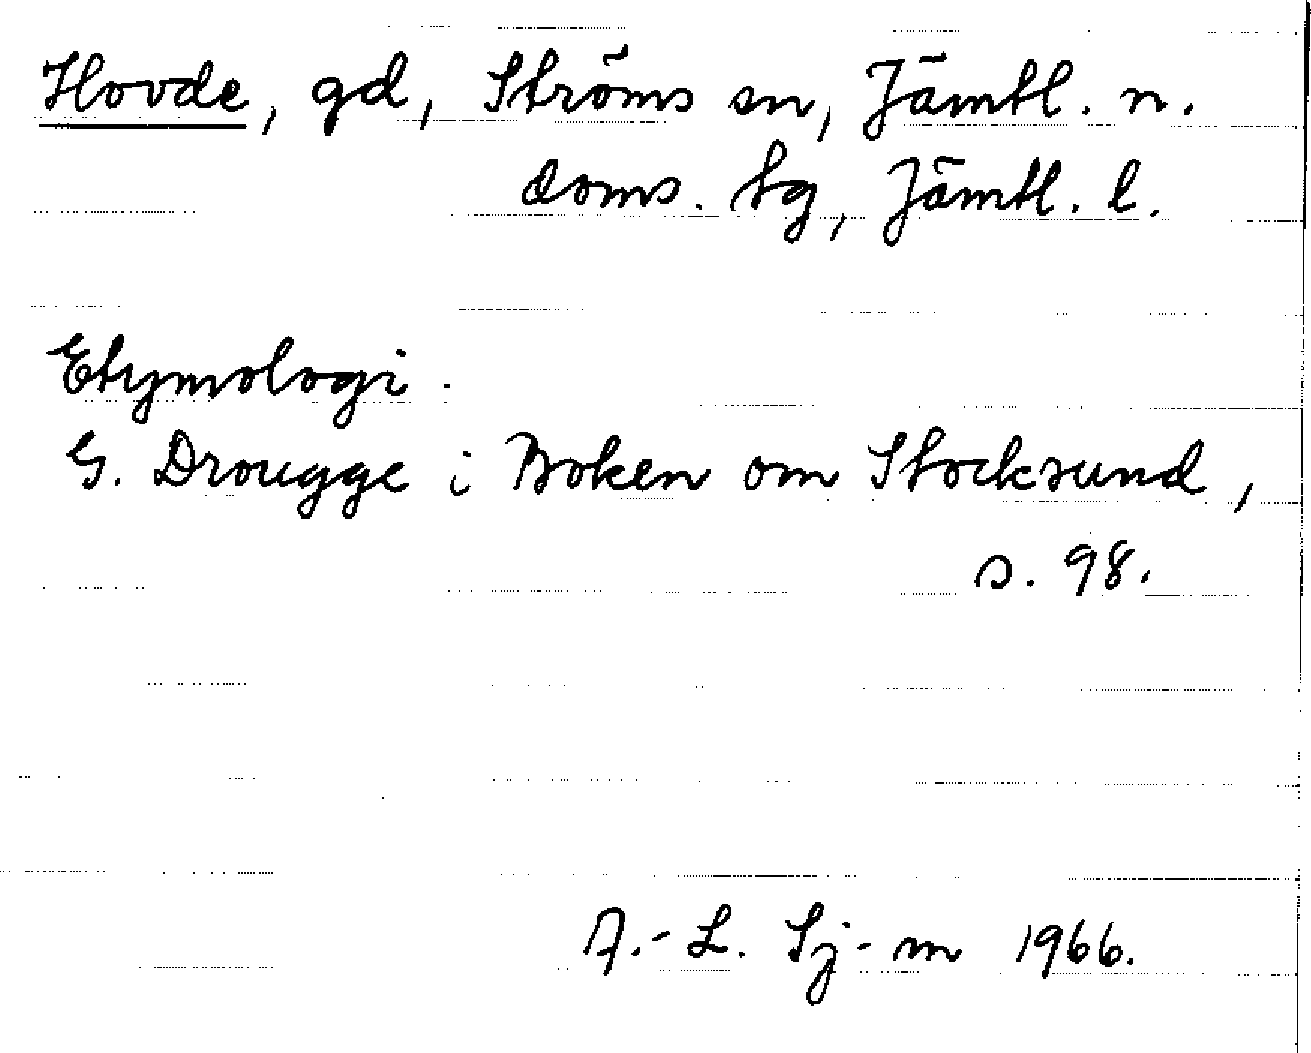 Hovde, gd, Ströms sn, Jämtl. n.
doms. tg, Jämtl. l.
Etymologi.
G. Drougge i Boken om Stocksund,
s. 98.
A.-L. Sj-m 1966.